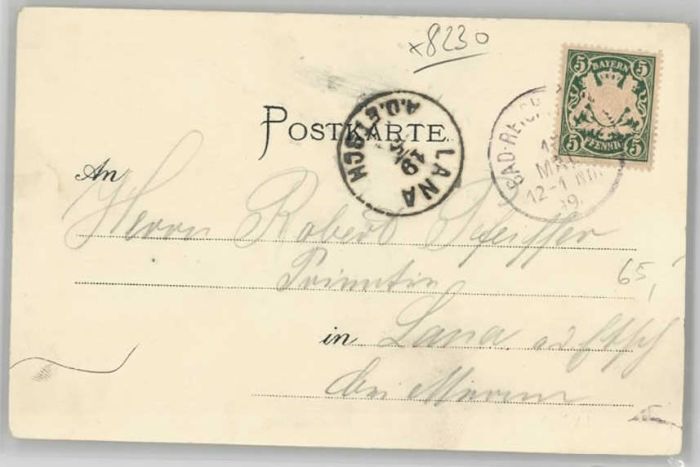 x8230
5 BAYERN 5
5 PFENNIG 5
BAD-REICH
MAI
12-1 NM.
POSTKARTE.
LANA
A.D.ETSCH
19
An
Herrn Robert Pfeiffer
65,
in Lana a d Etsch
bei Meran